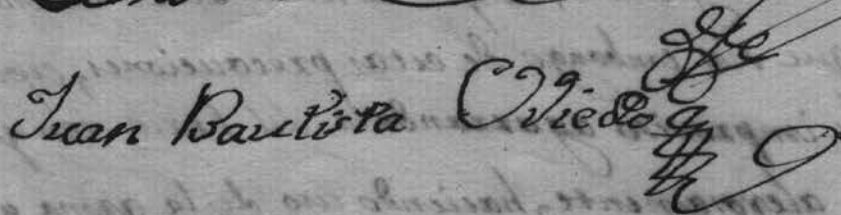 Juan Bautista Oviedo